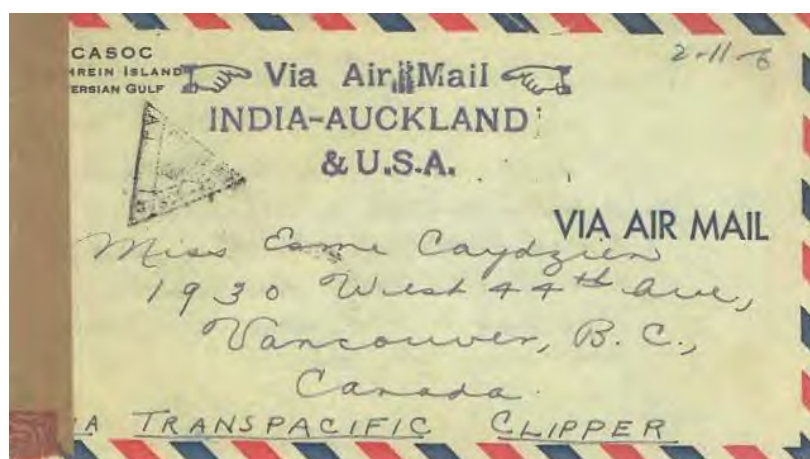 CASOC
HREIN ISLAND
ERSIAN GULF
2-11-6
Via Air Mail
INDIA-AUCKLAND
& U.S.A.
VIA AIR MAIL
Miss Esme Caydzien
1930 West 44th Ave,
Vancouver, B. C.,
Canada.
A TRANSPACIFIC CLIPPER